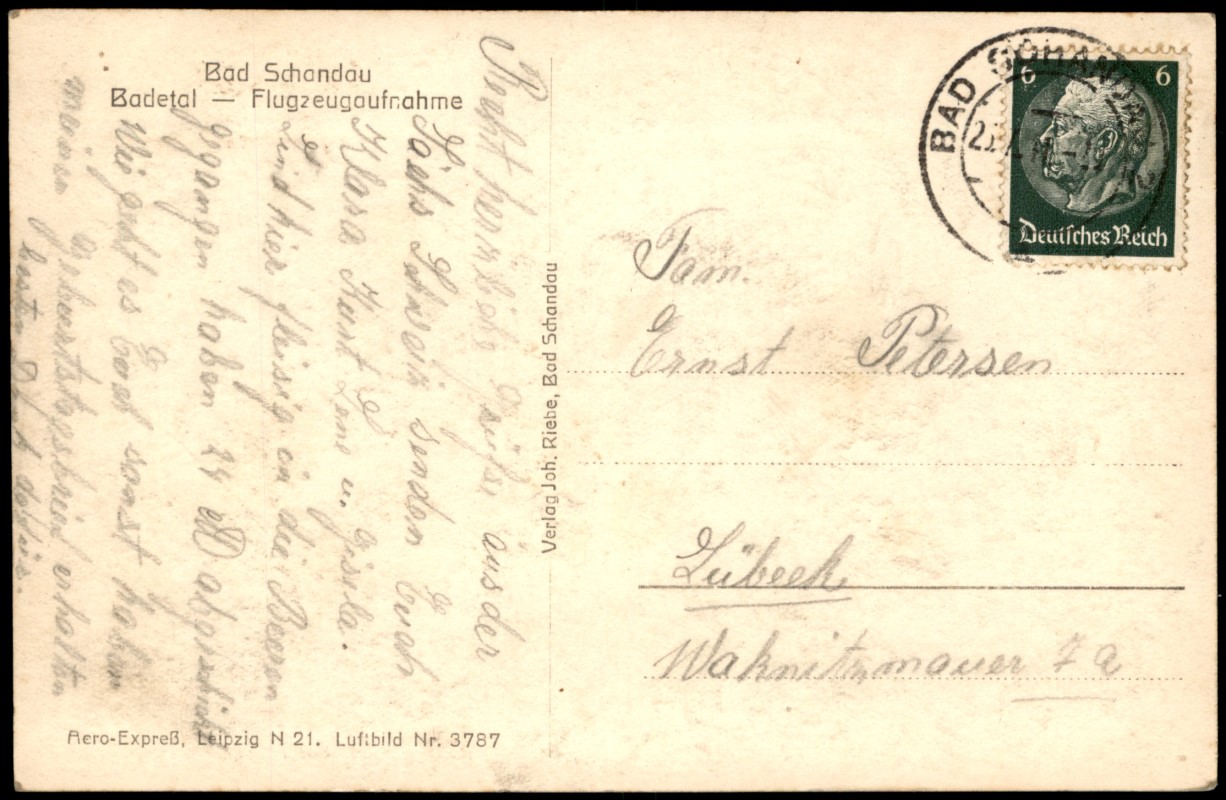 Bad Schandau
Badetal — Flugzeugaufnahme
Recht herzliche Grüße aus der
Sächs Schweiz senden Euch
Klara Kurt Lene u. Gisela.
Sind hier fleisig in die Beeren
gegangen haben 24 abgeschickt
Wie geht es Euch sonst haben
meinen Geburtstagsbrief erhalten
besten Dank dafür.
Verlag Joh. Riebe, Bad Schandau
Aero-Expreß, Leipzig N 21. Luftbild Nr. 3787
BAD SCHANDAU
6 6
Deutsches Reich
Fam.
Ernst Petersen
Lübeck
Waknitzmauer 7 a